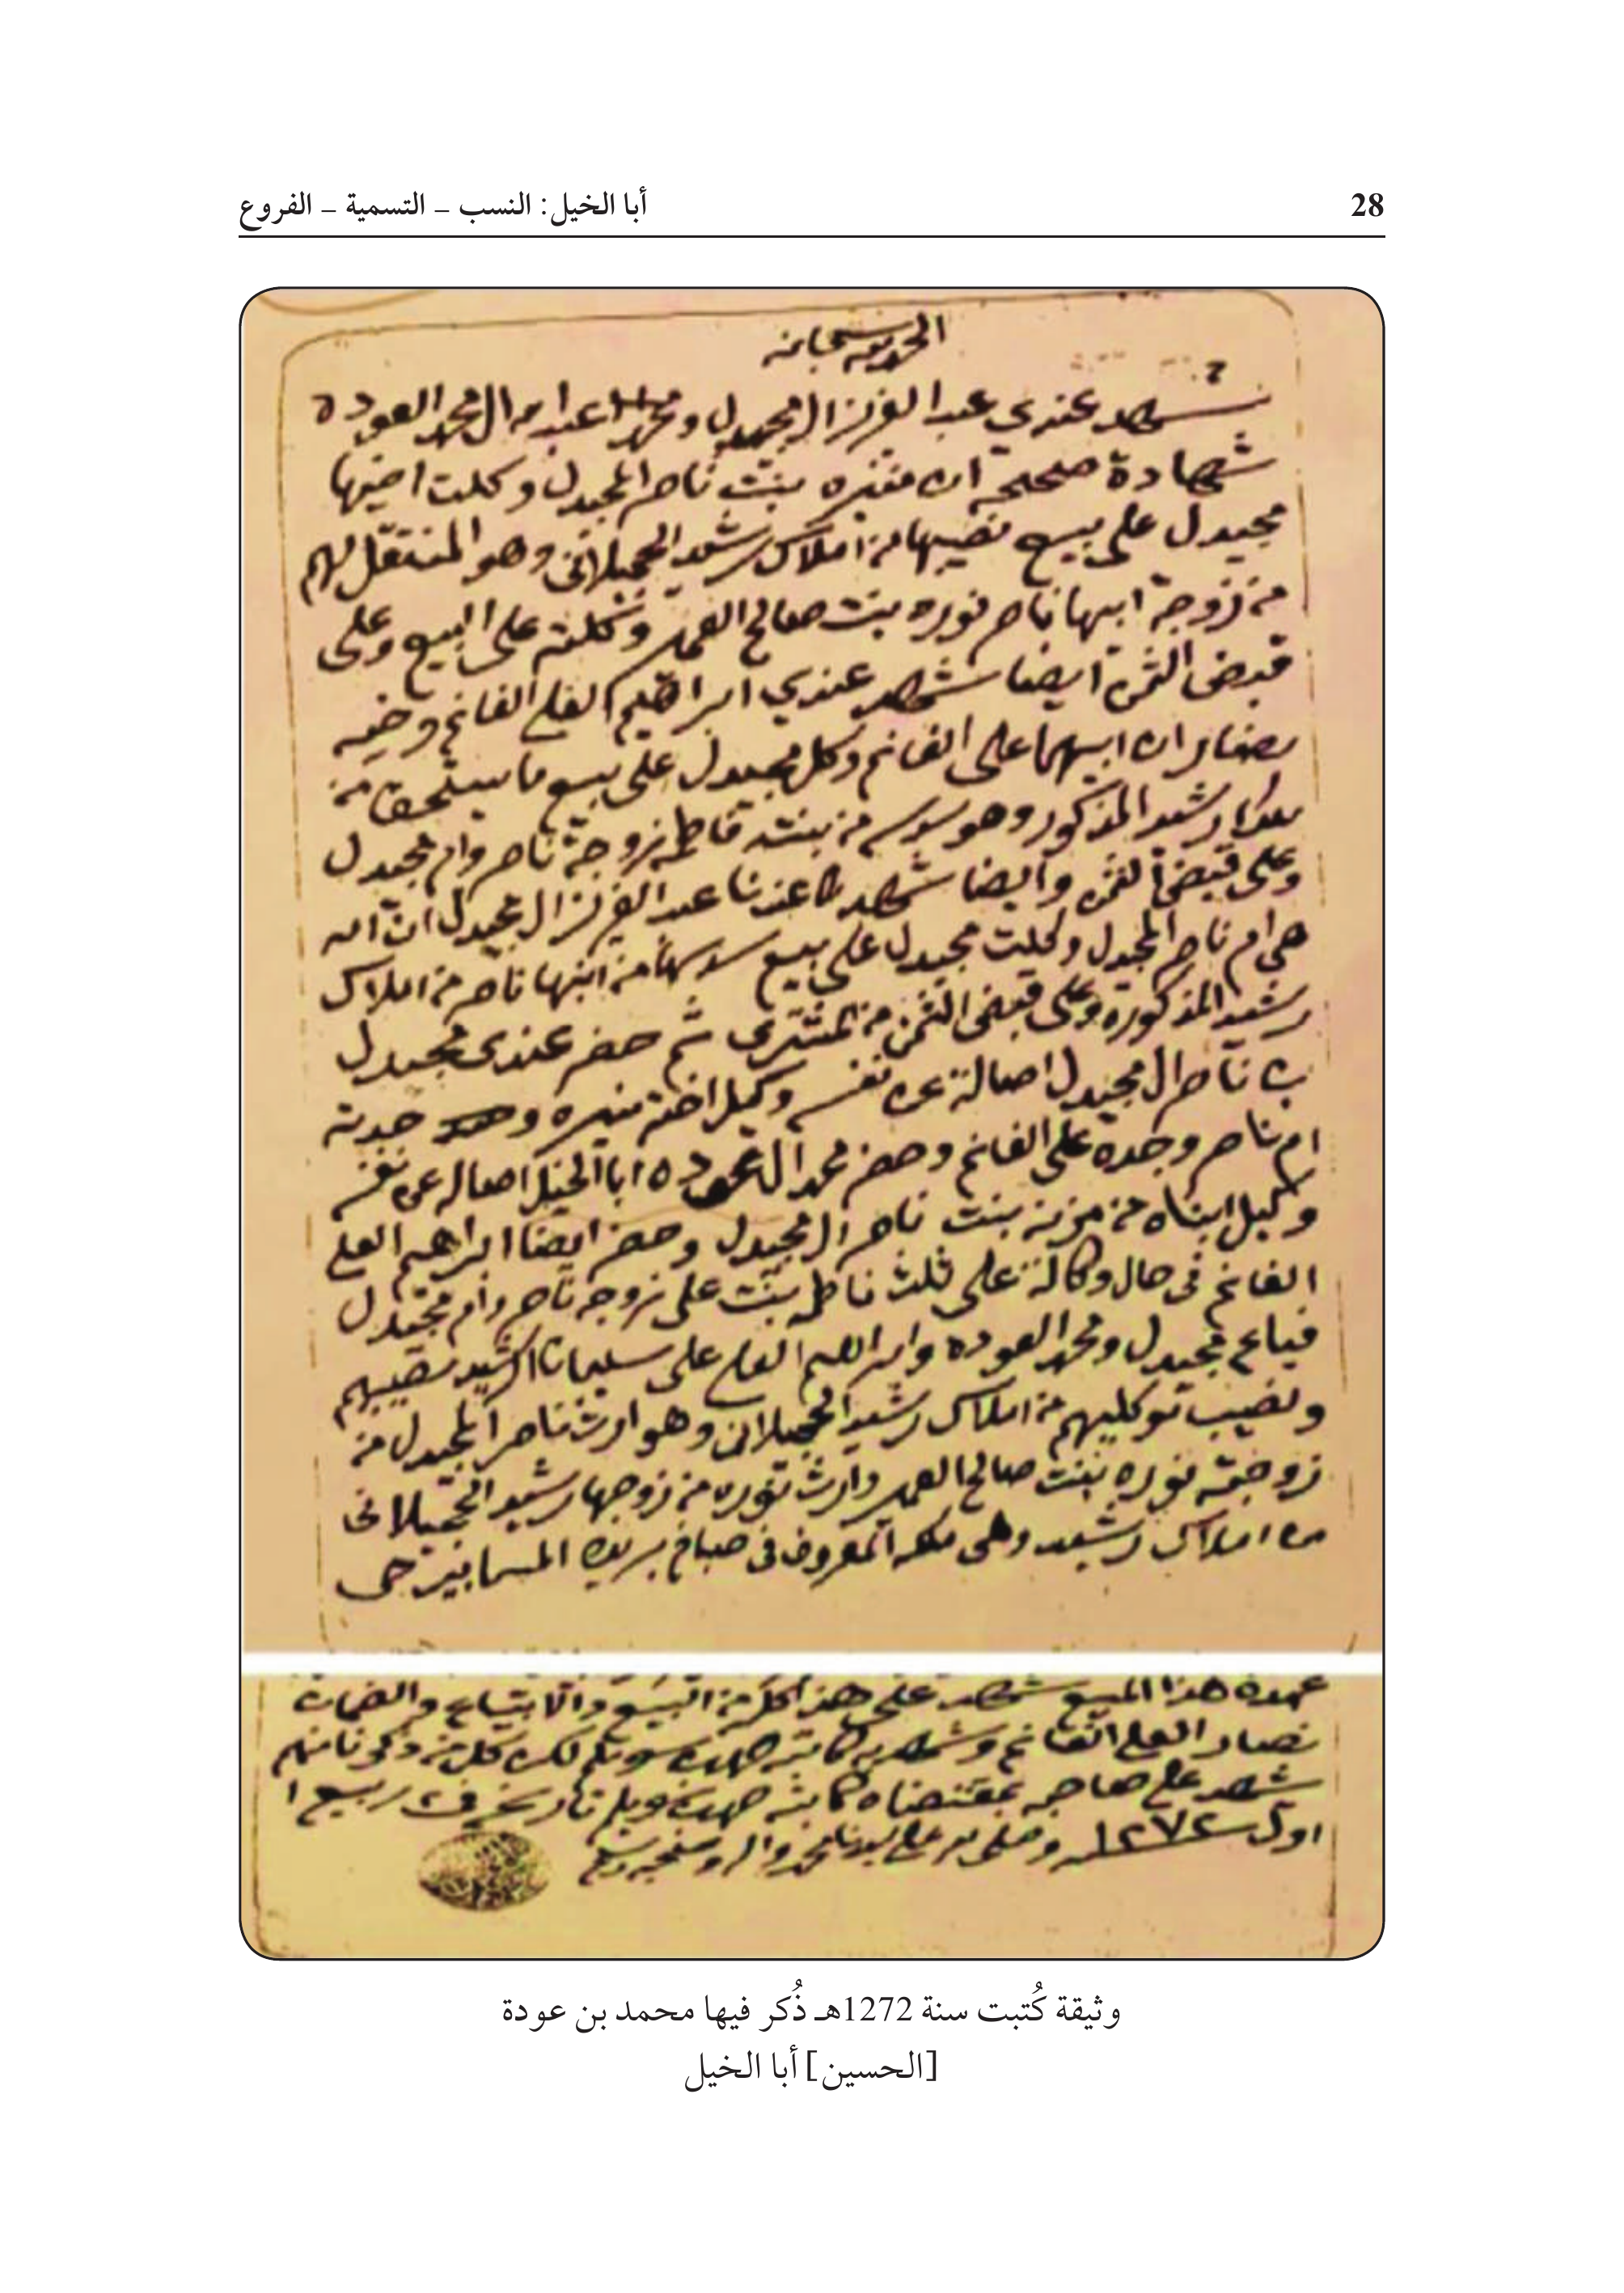 28
أبا الخيل: النسب – التسمية – الفروع
الحمد لله سبحانه
شهد عندي عبدالعزيز ال مجيدل ومحمد العبدالله ال محمد العوده
شهادة صحيحة ان منيره بنت ناصر المجيدل وكلت اخيها
مجيدل على بيع نصيبها من املاك رشيد الحجيلاني وهو المنتقل لهم
من زوجة ابيها ناصر نوره بنت صالح وكلته على البيع وعلى
قبض الثمن ايضا شهد عندي ابراهيم العلي الغانم
ان ابيهما علي الغانم وكل مجيدل على بيع ما يستحق من
رشيد المذكور وهو من بنته فاطمه زوجة ناصر وام مجيدل
وعلى قبض الثمن وايضا شهد عندنا عبدالعزيز ال مجيدل ان
هي ام ناصر المجيدل وكلت مجيدل على بيع سدسها من ابنها ناصر من املاك
رشيد المذكوره وعلى قبض الثمن من المشتري ثم حضر عندي مجيدل
بن ناصر ال مجيدل اصالة عن نفسه وكيل اخته منيره و جدته
ام ناصر وجده علي الغانم وحضر محمد ال عوده ابا الخيل اصاله عن نفسه
وكيل ابناه من مزنه بنت ناصر ال مجيدل وحضر ايضا ابراهيم العلي
الغانم في حال وكالة على ثلث فاطمه بنت علي زوجه ناصر وام مجيدل
فباع مجيدل ومحمد العوده وابراهيم العلي على سليمان الرشيد نصيبهم
ونصيب توكليهم من املاك رشيد الحجيلاني وهو ارث ناصر المجيدل من
زوجته نوره بنت صالح وارث نوره من زوجها رشيد الحجيلاني
من املاك رشيد وهي ملكه المعروف في صباخ بريده المسما
عهدة هذا المبيع شهد على هذا كله من البيع والابتياع والضمان
العلي الغانم وشهد به كاتبه
شهد على صاحبه بمقتضاه كاتبه تاريخ في ربيع ا
اول ١٢٧٢ وصلى الله على سيدنا محمد واله وصحبه وسلم
وثيقة كُتبت سنة 1272هـ ذُكر فيها محمد بن عودة
[الحسين] أبا الخيل